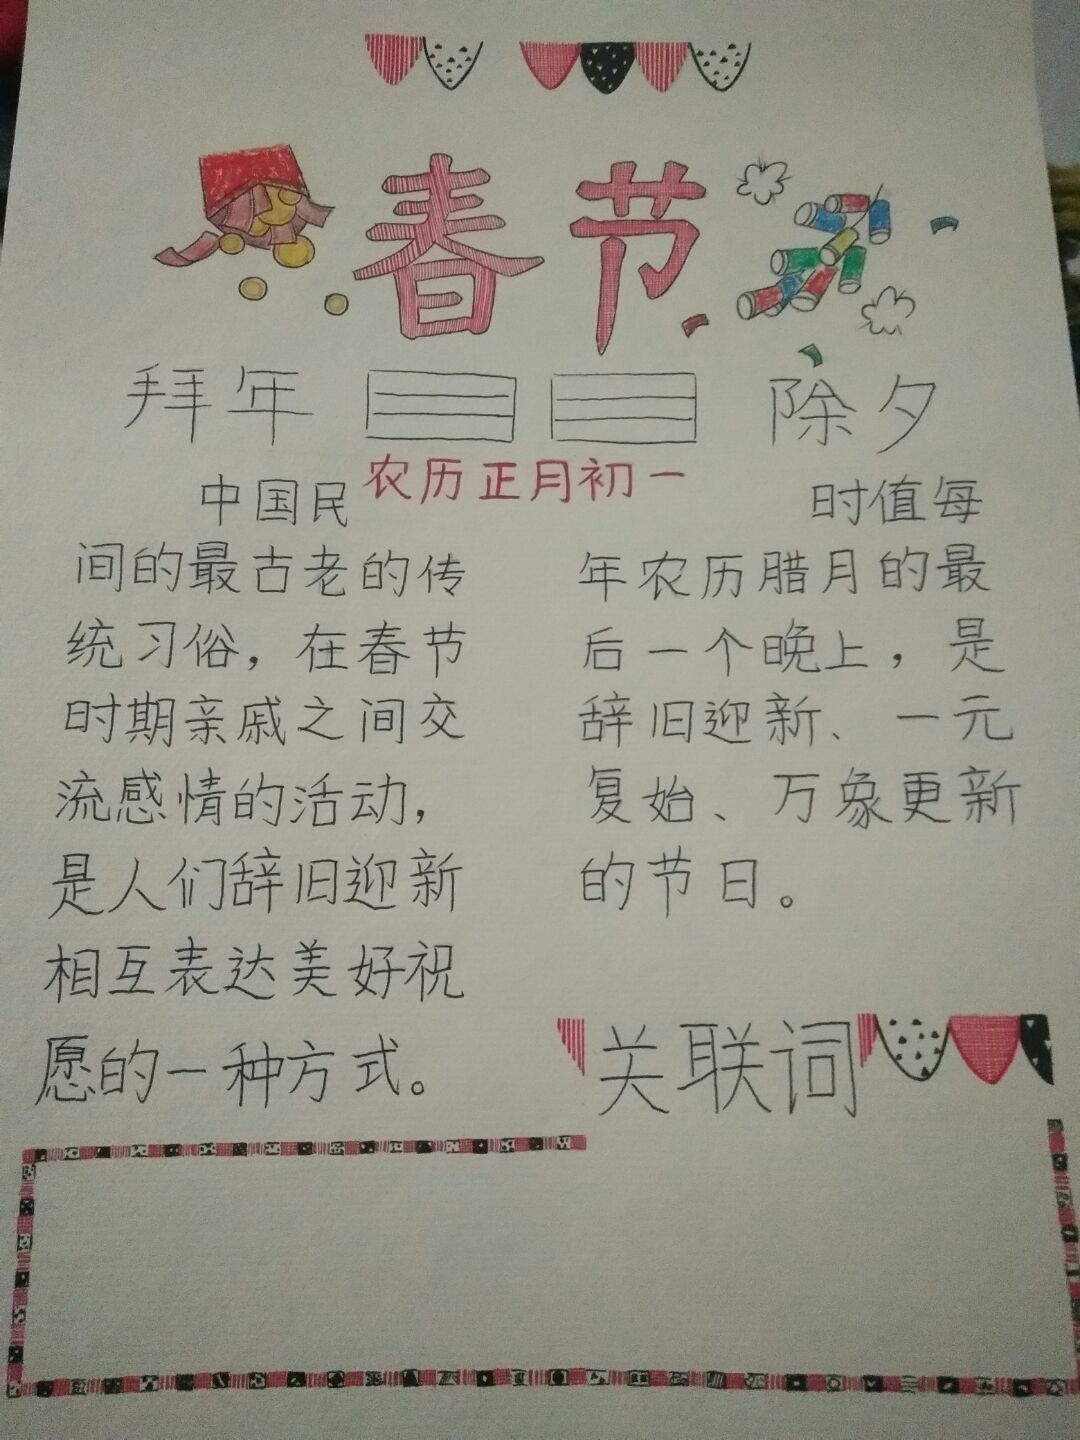 春节
拜年
除夕
农历正月初一
中国民
间的最古老的传
统习俗，在春节
时期亲戚之间交
流感情的活动，
是人们辞旧迎新
相互表达美好祝
愿的一种方式。
时值每
年农历腊月的最
后一个晚上，是
辞旧迎新、一元
复始、万象更新
的节日。
关联词